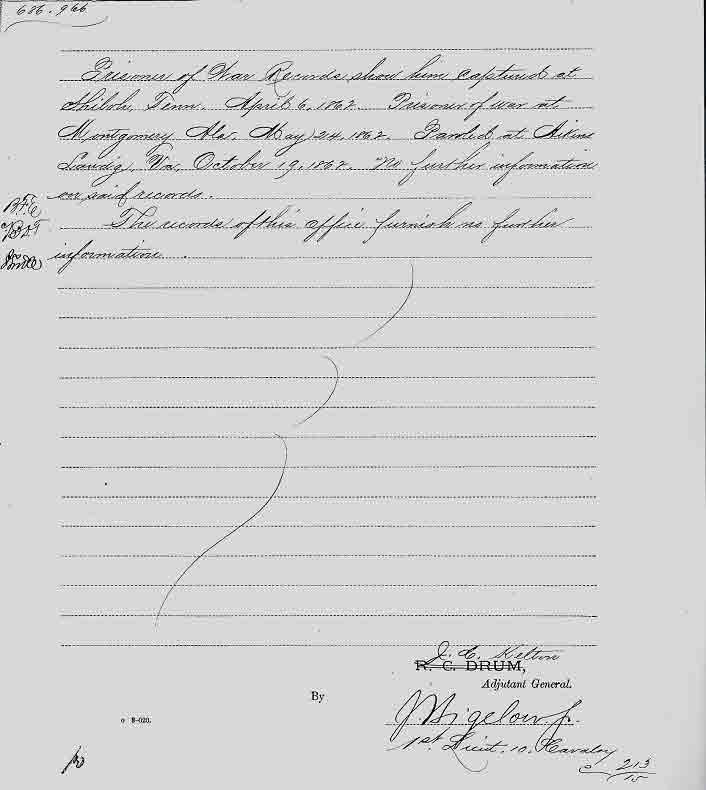 686.966
Prisoner of War Records show him captured at
Shiloh, Tenn. April 6, 1862. Prisoner of war at
Montgomery Ala. May 24, 1862. Paroled at Aikins
Landig, Va, October 19, 1862. No further information
on said records.
The records of this office furnish no further
information.
B.F.C
J. C. Kelton
R. C. DRUM,
Adjutant General.
By
J Bigelow Jr.
1st. Lieut. 10. Cavalry
213
15